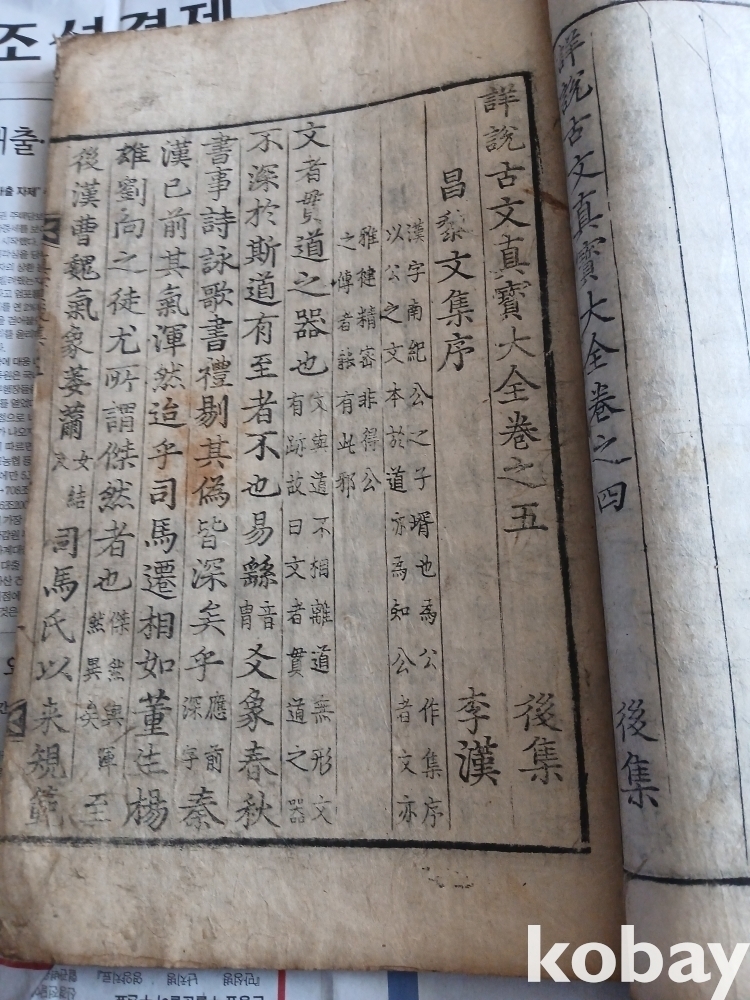 詳說古文真寶大全卷之四
後集
詳說古文真寶大全卷之五 後集
昌黎文集序 李漢
漢字南紀公之子壻也爲公作集序
以公之文本於道亦爲知公者文亦
雅健精密非得公
之傳者詎有此邪
文者貫道之器也
文與道不相離道無形文
有跡故曰文者貫道之器
不深於斯道有至者不也易繇音冑爻象春秋
書事詩詠歌書禮剔其僞皆深矣乎應前深字秦
漢已前其氣渾然迨乎司馬遷相如董生楊
雄劉向之徒尤所謂傑然者也傑然與渾然異矣至
後漢曹魏氣象萎薾
司馬氏以来規範
조선경제
kobay